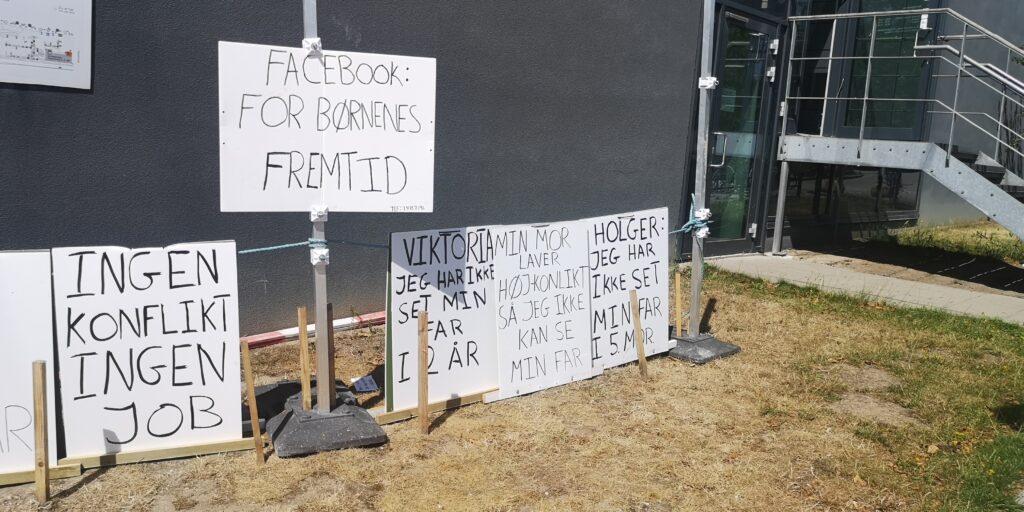 FACEBOOK:
FOR BØRNENES
FREMTID
INGEN
KONFLIKT
INGEN
JOB
VIKTORIA
JEG HAR IKKE
SET MIN
FAR
I 2 ÅR
MIN MOR
LAVER
HØJKONLIKT
SÅ JEG IKKE
KAN SE
MIN FAR
HOLGER:
JEG HAR
IKKE SET
MIN FAR
I 5 MDR.